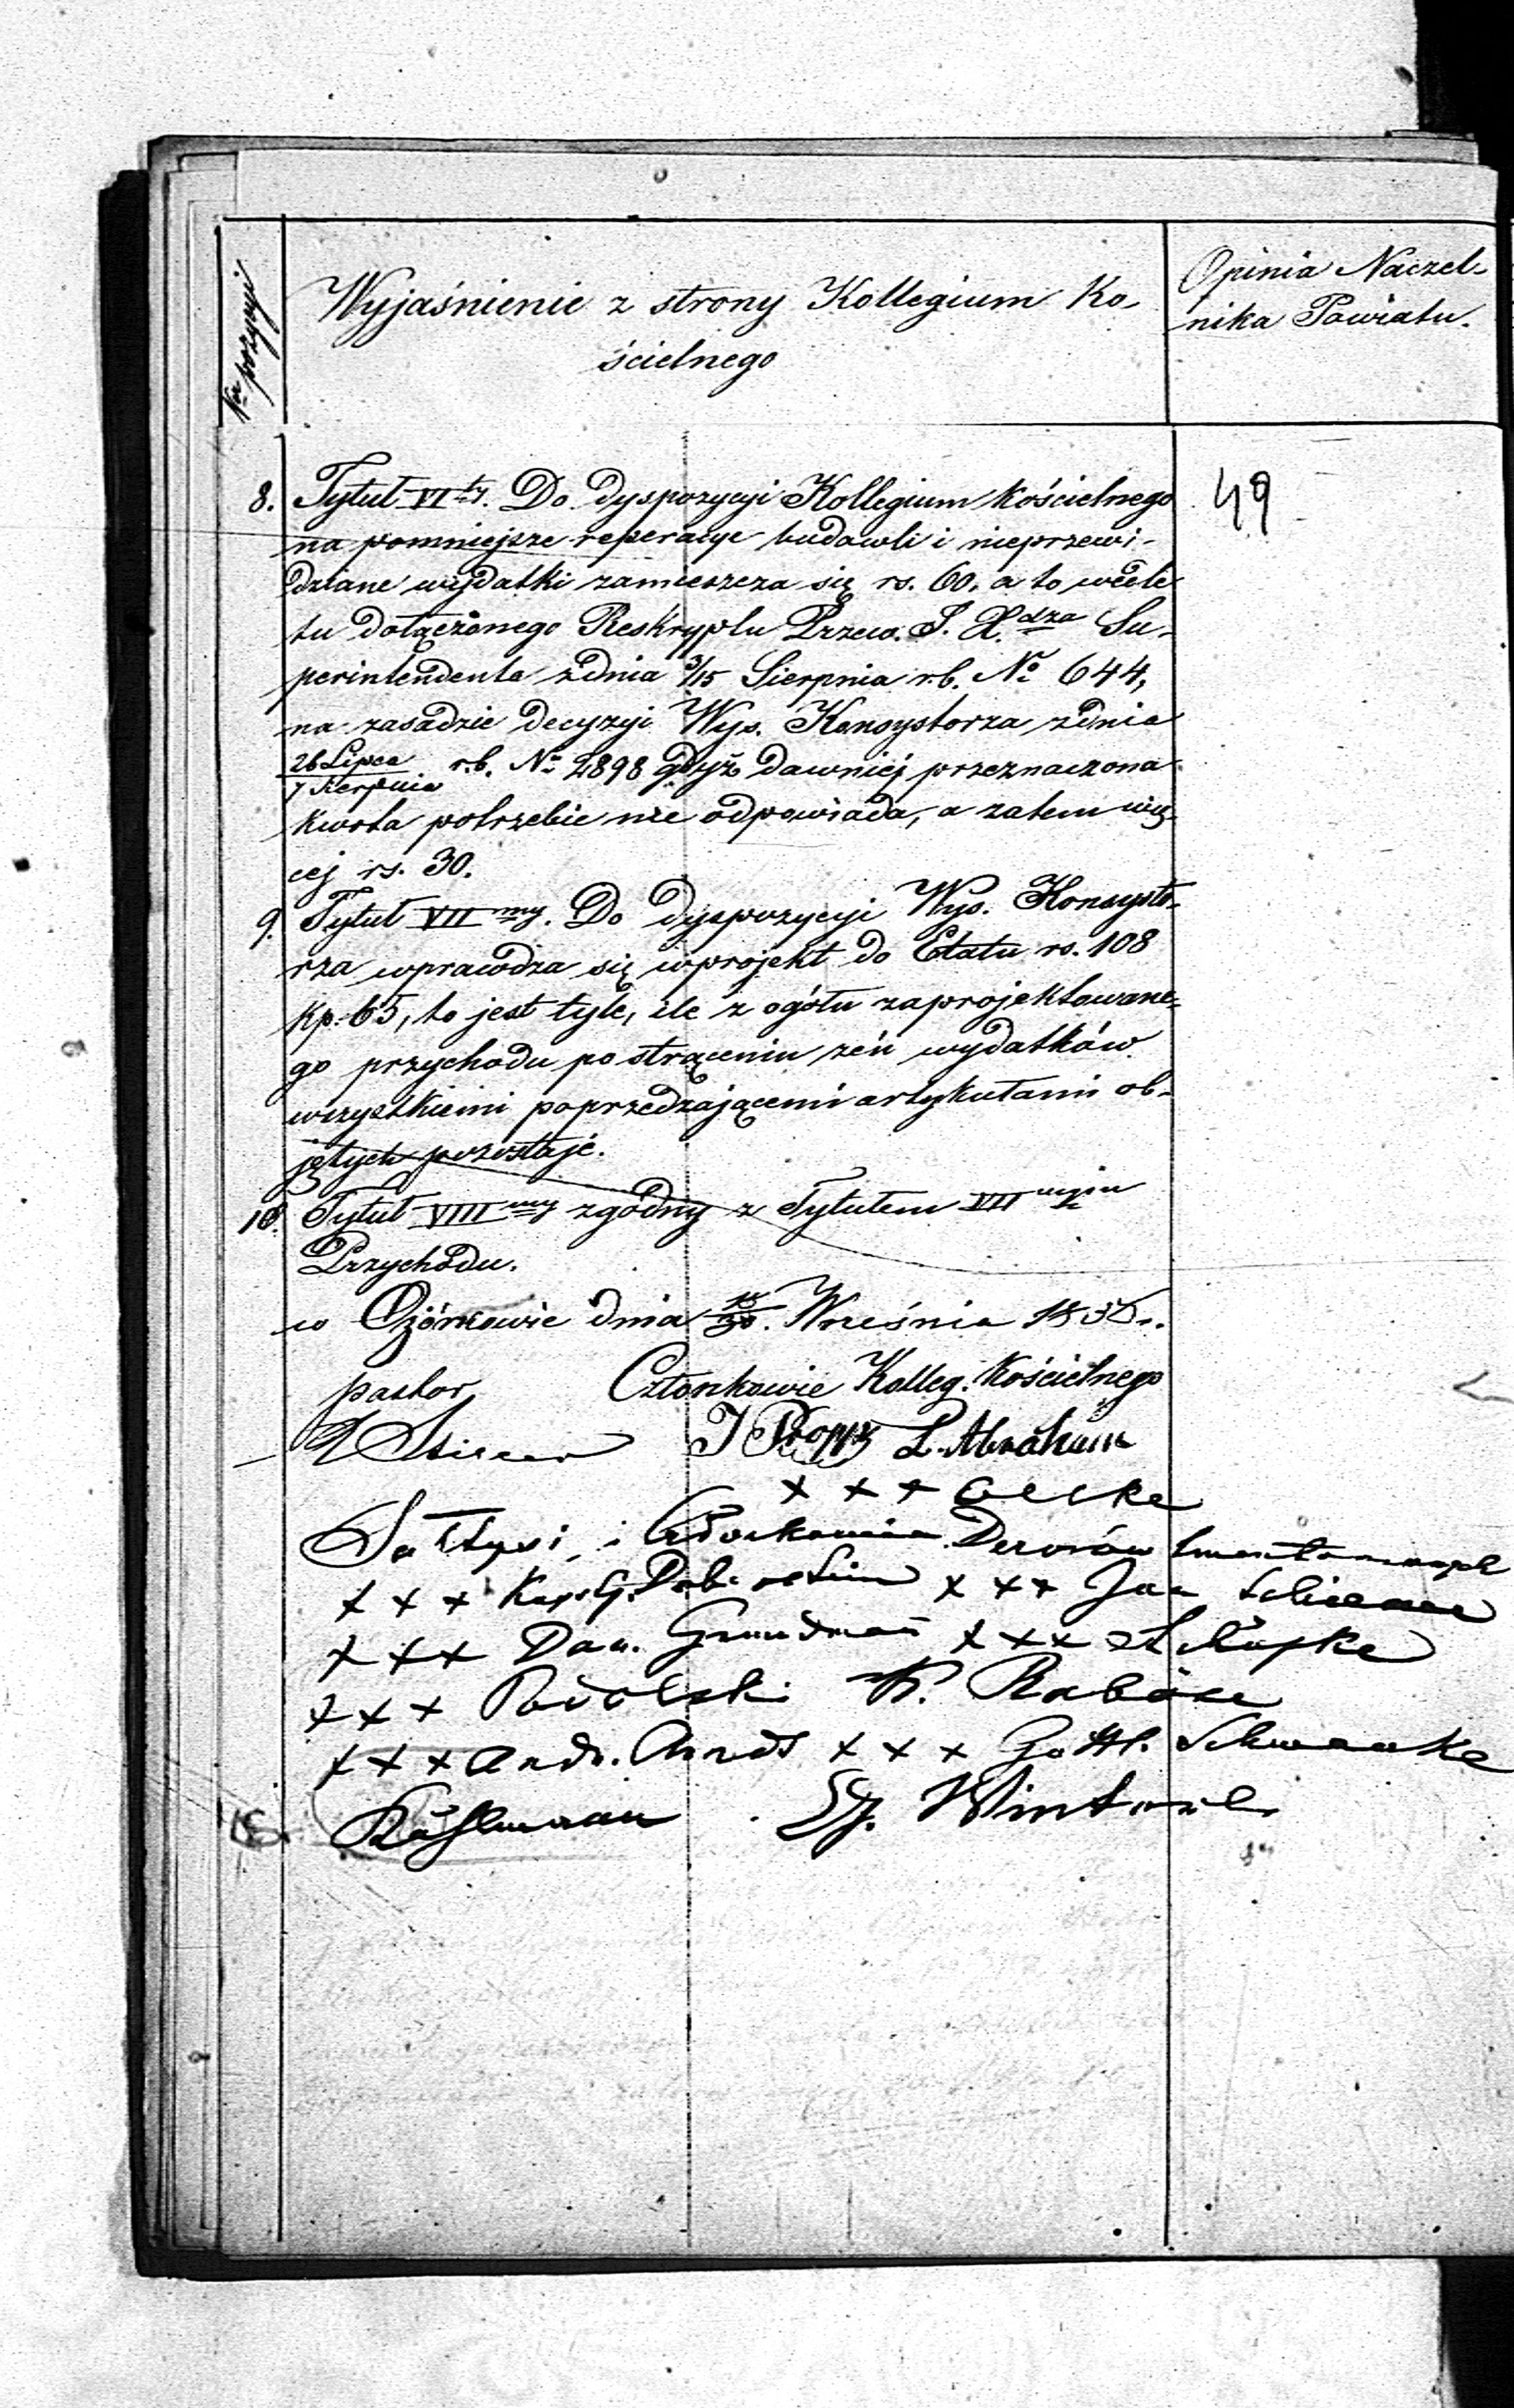 Nr pozycyi
Wyjaśnienie z strony Kollegium Ko-
ścielnego
Opinia Naczel-
nika Powiatu.
49
8. Tytuł VI ty. Do dyspozycyi Kollegium Kościelnego
na pomniejsze reperacye budowli i nieprzewi-
dziane wydatki zamieszcza się rs. 60, a to wedle
tu dołączonego Reskryptu Przew. J. X. dza Su-
perintendenta z dnia 3/15 Sierpnia r.b. No 644,
na zasadzie decyzyi Wys. Konsystorza z dnia
26 Lipca / 7 Sierpnia r.b. No 2898 gdyż dawniej przeznaczona
kwota potrzebie nie odpowiada, a zatem wię-
cej rs. 30.
9. Tytuł VII my. Do dyspozycyi Wys. Konsysto-
rza wprawdza się w projekt do Etatu rs. 108
kp. 65, to jest tyle, ile z ogółu zaprojektowane-
go przychodu po strąceniu zeń wydatków
wszystkiemi poprzedzającemi artykułami ob-
jętych pozostaje.
10. Tytuł VIII my zgodny z Tytułem VII mym
Przychodu.
w Ozorkowie dnia Września
pastor Członkowie Kolleg. Kościelnego
J Propp L. Abraham
x x x
Sołtysi i
x x x x x x Jan
x x x Dan. Grundman x x x
x x x Podolski
x x x Andr. Arndt x x x Gottl. Schwanke